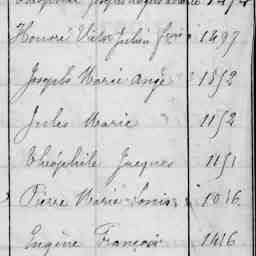 Honoré Victor Julien 1497
Joseph Marie Ange 1552
Jules Marie 1152
Théophile Jacques 1151
Pierre Marie Louis 1016
Eugène François 1416